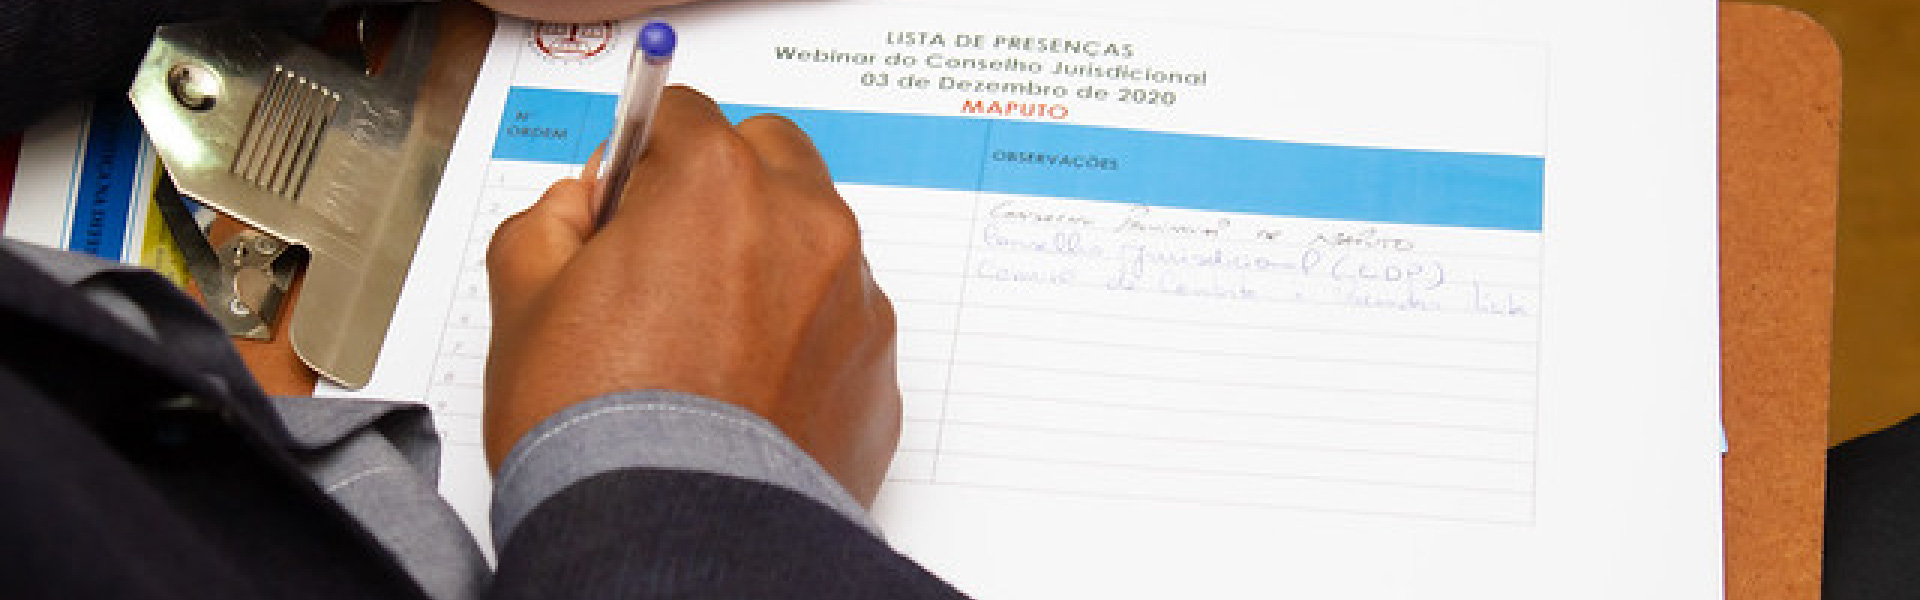 LISTA DE PRESENÇAS
Webinar do Conselho Jurisdicional
03 de Dezembro de 2020
MAPUTO
Nº ORDEM
OBSERVAÇÕES
1
2
Conselho Provincial de Maputo
Conselho Jurisdicional (CDP)
6
7
8
9